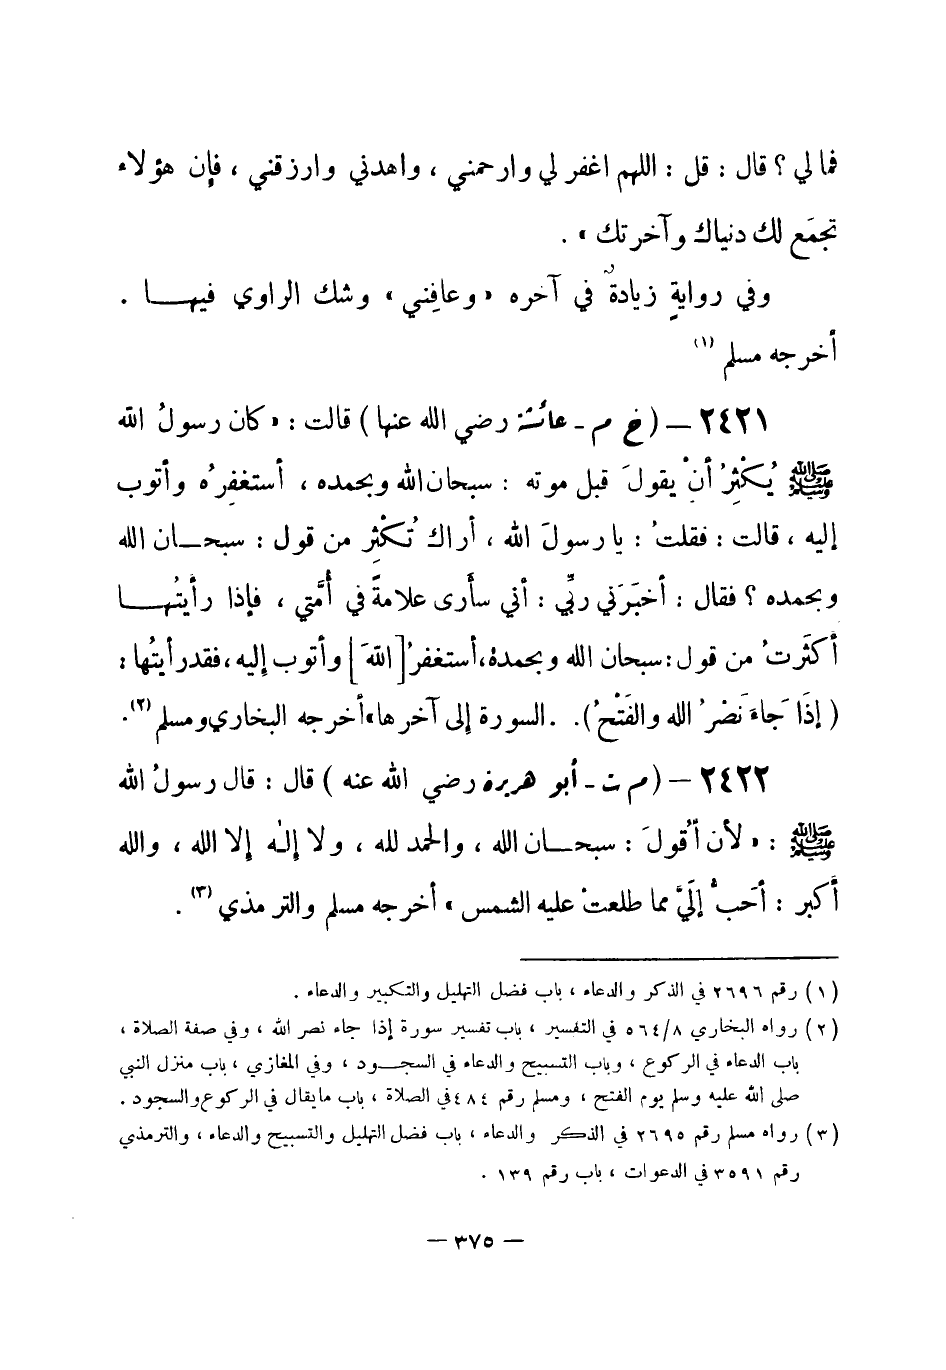 فما لي ؟ قال : قل : اللهم اغفر لي وارحمني ، واهدني وارزقني ، فإن هؤلاء
تجمَع لك دنياك وآخرتك » .
وفي روايةٍ زيادةٌ في آخره « وعافِني » وشك الراوي فيهــا .
أخرجه مسلم (١)
٢٤٢١ – ( خ م - عائشة رضي الله عنها ) قالت : « كان رسولُ الله
ﷺ يُكْثِرُ أنْ يقولَ قبل موته : سبحان الله وبحمده ، أستغفرُه وأتوب
إليه ، قالت : فقلتُ : يا رسولَ الله ، أراك تُكْثِر من قول : سبحــان الله
وبحمده ؟ فقال : أخبَرَني ربِّي : أني سأرى علامةً في أُمَّتي ، فإذا رأيتُهــا
أكثَرتُ من قول : سبحان الله وبحمده ، أستغفرُ [اللهَ] وأتوب إليه ، فقد رأيتُها :
( إذَا جاءَ نَصْرُ الله والفَتْحُ ). . السورة إلى آخرها » أخرجه البخاري ومسلم (٢).
٢٤٢٢ – ( م ت - أبو هريرة رضي الله عنه ) قال : قال رسولُ الله
ﷺ : « لأن أقولَ : سبحــان الله ، والحمد لله ، ولا إله إلا الله ، والله
أكبر : أحَبُّ إلَيَّ مما طلعتْ عليه الشمس » أخرجه مسلم والترمذي (٣) .
(١) رقم ٢٦٩٦ في الذكر والدعاء ، باب فضل التهليل والتكبير والدعاء .
(٢) رواه البخاري ٥٦٤/٨ في التفسير ، باب تفسير سورة إذا جاء نصر الله ، وفي صفة الصلاة ،
باب الدعاء في الركوع ، وباب التسبيح والدعاء في السجــود ، وفي المغازي ، باب منزل النبي
صلى الله عليه وسلم يوم الفتح ، ومسلم رقم ٤٨٤ في الصلاة ، باب ما يقال في الركوع والسجود .
(٣) رواه مسلم رقم ٢٦٩٥ في الذكر والدعاء ، باب فضل التهليل والتسبيح والدعاء ، والترمذي
رقم ٣٥٩١ في الدعوات ، باب رقم ١٣٩ .
– ٣٧٥ –